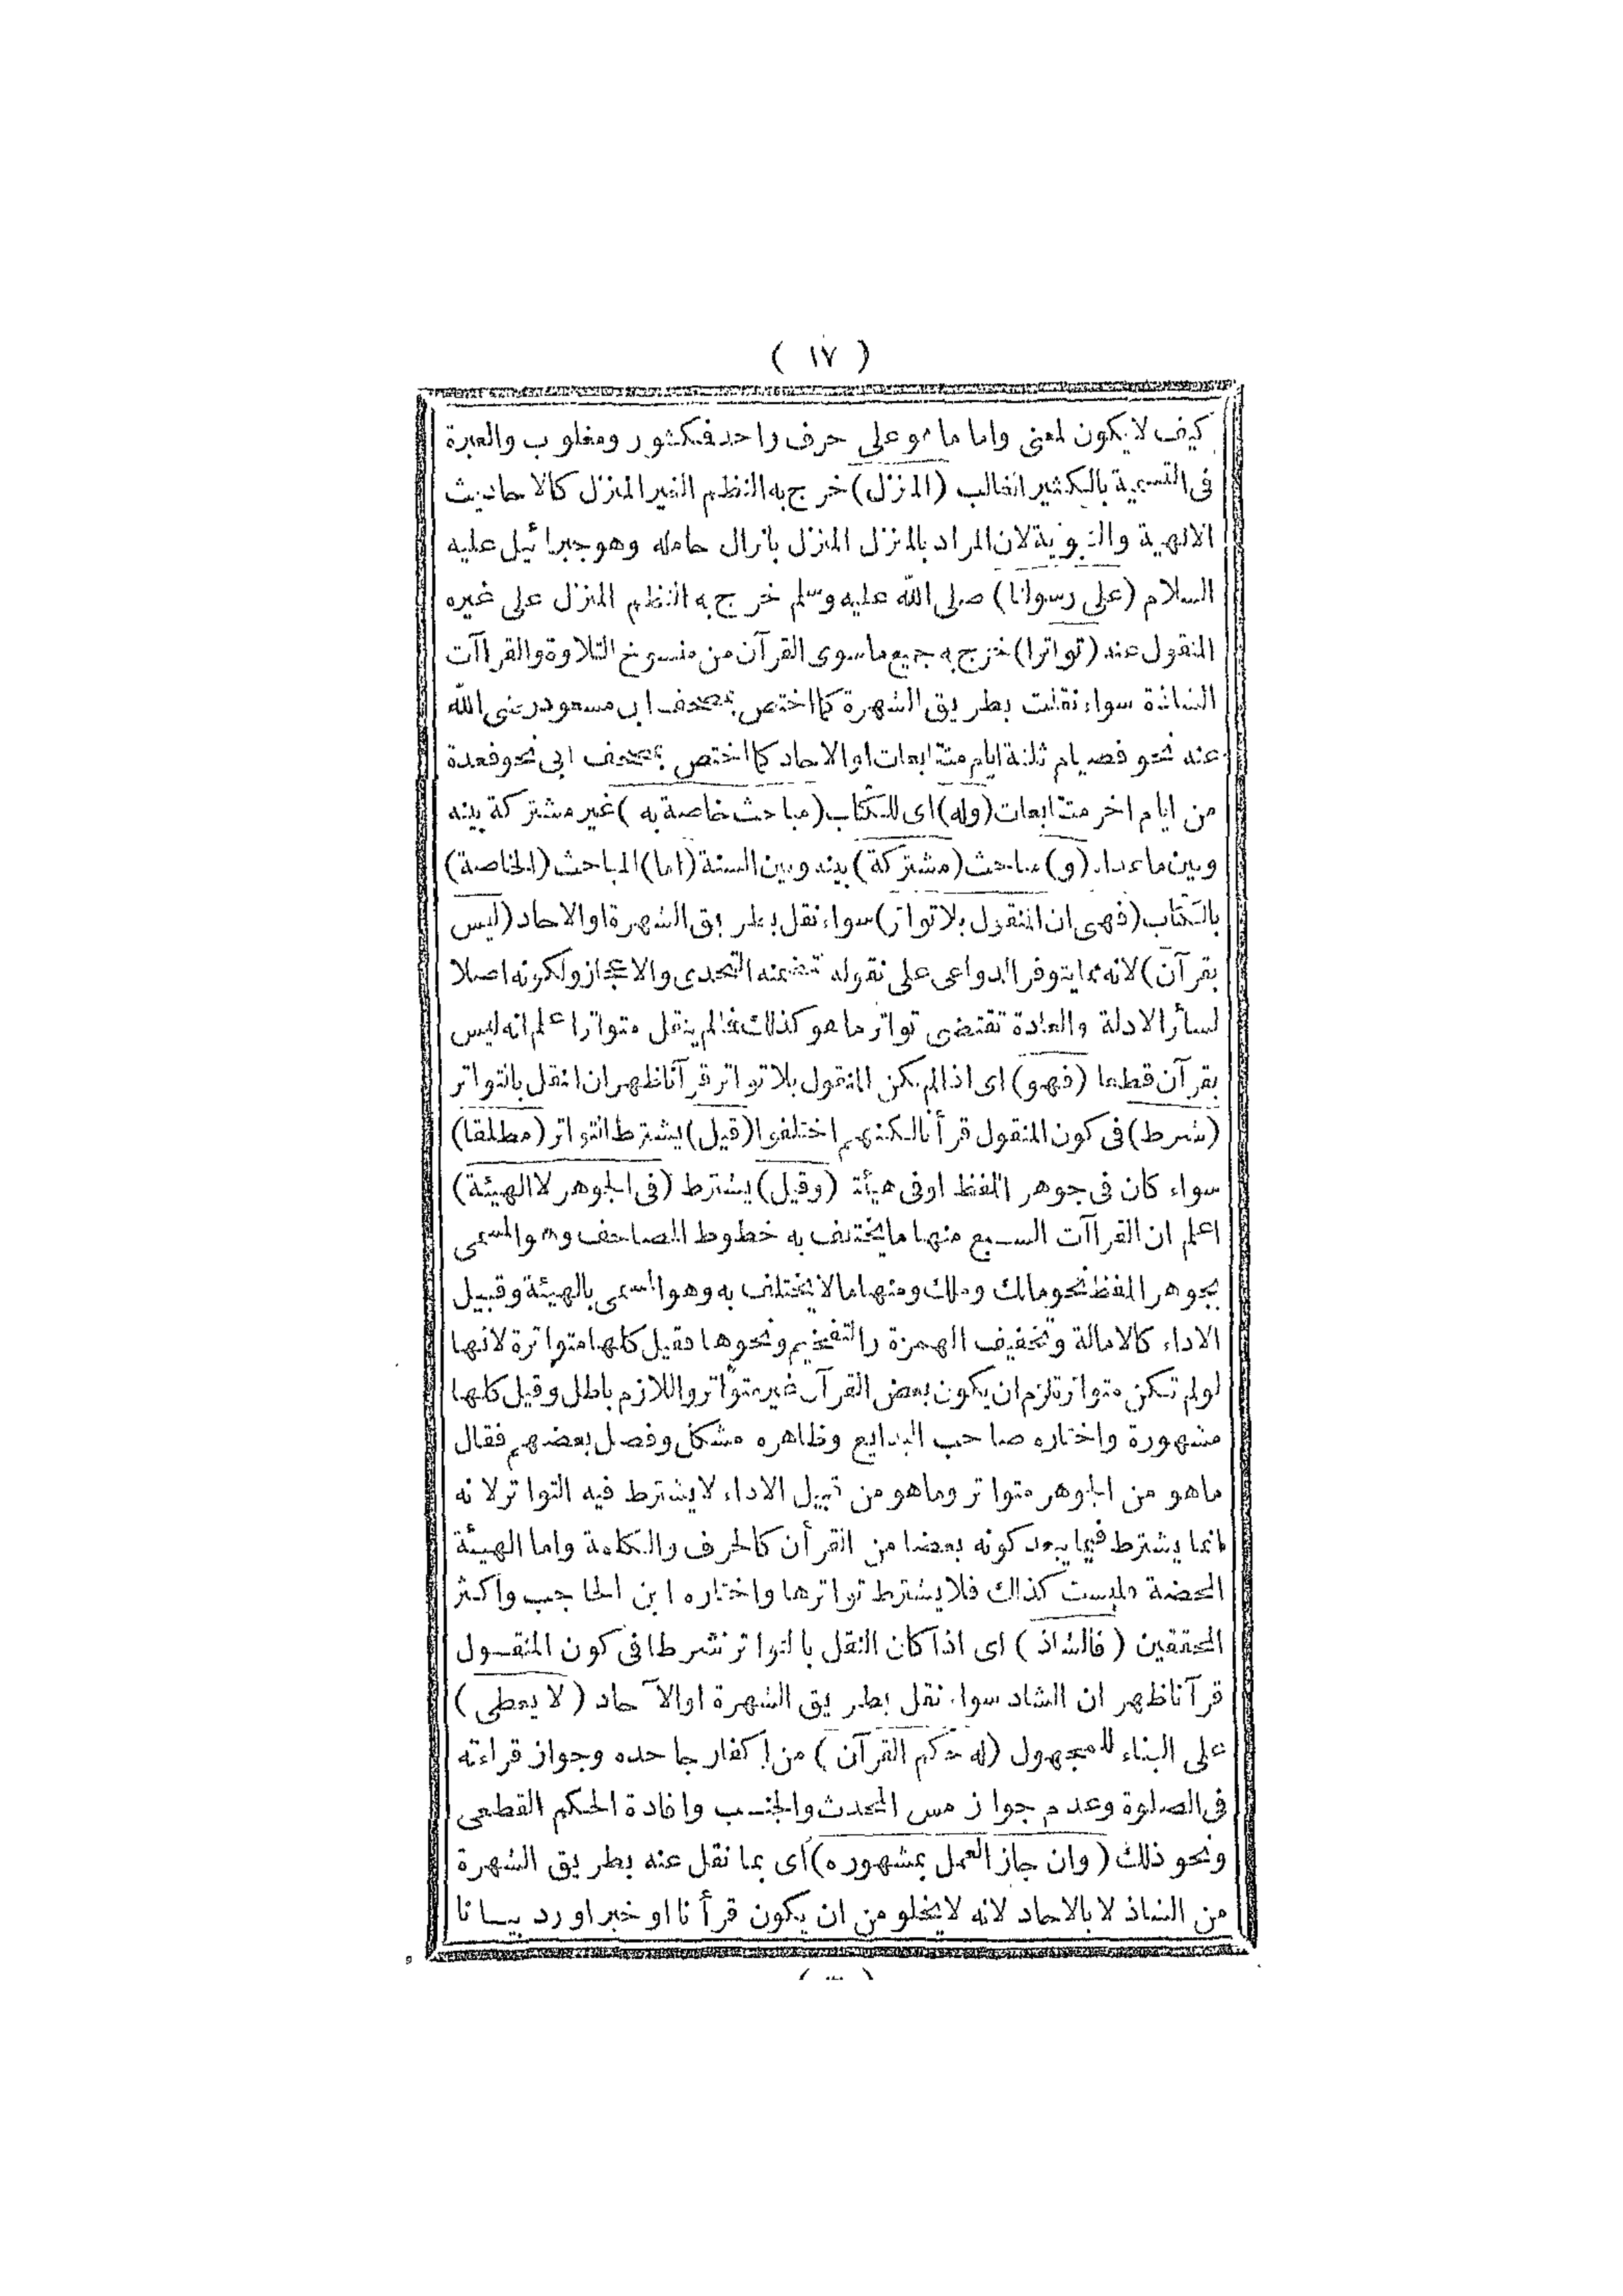 ( ١٧ )
كيف لا يكون لمعنى واما ما هو على حرف واحد فكثور ومغلوب والعبرة
فى التسمية بالكثير الغالب (المنزل) خرج به النظم الغير المنزل كالاحاديث
الالهية والنبوية لان المراد بالمنزل المنزل بانزال حامله وهو جبرائيل عليه
السلام (على رسولنا) صلى الله عليه وسلم خرج به النظم المنزل على غيره
المنقول عنه (تواترا) خرج به جميع ما سوى القرآن من منسوخ التلاوة والقراآت
الشاذة سواء نقلت بطريق الشهرة كما اختص بمصحف ابن مسعود رضى الله
عنه نحو فصيام ثلثة ايام متتابعات او الاحاد كما اختص بمصحف ابى نحو فعدة
من ايام اخر متتابعات (وله) اى للكتاب (مباحث خاصة به) غير مشتركة بينه
وبين ما عداه (و) مباحث (مشتركة) بينه وبين السنة (اما) المباحث (الخاصة)
بالكتاب (فهى ان المنقول بلا تواتر) سواء نقل بطريق الشهرة او الاحاد (ليس
بقرآن) لانه مما يتوفر الدواعى على نقوله تضمنه التحدى والاعجاز ولكونه اصلا
لسائر الادلة والعادة تقتضى تواتر ما هو كذلك فما لم ينقل متواترا علم انه ليس
بقرآن قطعا (فهو) اى اذا لم يكن المنقول بلا تواتر قرآنا ظهر ان النقل بالتواتر
(شرط) فى كون المنقول قرأنا لكنهم اختلفوا (قيل) يشترط التواتر (مطلقا)
سواء كان فى جوهر اللفظ او فى هيأته (وقيل) يشترط (فى الجوهر لا الهيئة)
اعلم ان القراآت السبع منها ما يختلف به خطوط المصاحف وهو المسمى
بجوهر اللفظ نحو مالك وملك ومنها ما لا يختلف به وهو المسمى بالهيئة وقبيل
الاداء كالامالة وتخفيف الهمزة والتفخيم ونحوها فقيل كلها متواترة لانها
لو لم تكن متواترة لزم ان يكون بعض القرآن غير متواتر واللازم باطل وقيل كلها
مشهورة واختاره صاحب البدايع وظاهره مشكل وفصل بعضهم فقال
ما هو من الجوهر متواتر وما هو من قبيل الاداء لا يشترط فيه التواتر لانه
انما يشترط فيما يعد كونه بعضا من القرأن كالحرف والكلمة واما الهيئة
المحضة فليست كذلك فلا يشترط تواترها واختاره ابن الحاجب واكثر
المحققين (فالشاذ) اى اذا كان النقل بالتواتر شرطا فى كون المنقول
قرآنا ظهر ان الشاد سواء نقل بطريق الشهرة او الآحاد (لا يعطى)
على البناء للمجهول (له حكم القرآن) من اكفار جاحده وجواز قراءته
فى الصلوة وعدم جواز مس المحدث والجنب وافادة الحكم القطعى
ونحو ذلك (وان جاز العمل بمشهوره) اى بما نقل عنه بطريق الشهرة
من الشاذ لا بالاحاد لانه لا يخلو من ان يكون قرأنا او خبرا ورد بيانا